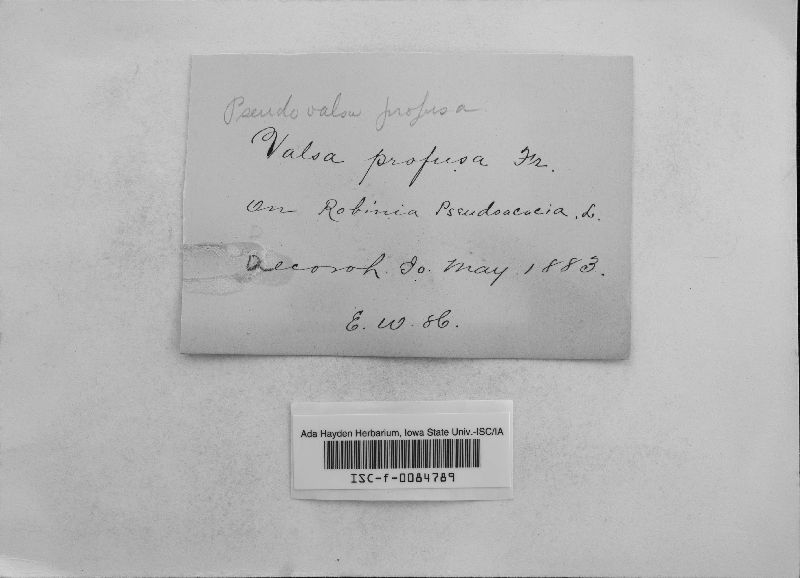 Pseudovalsa profusa
Valsa profusa Fr.
On Robinia Pseudoacacia, L.
Decorah. Io. May 1883.
E. W. H.
Ada Hayden Herbarium, Iowa State Univ.-ISC/IA
ISC-f-0084789